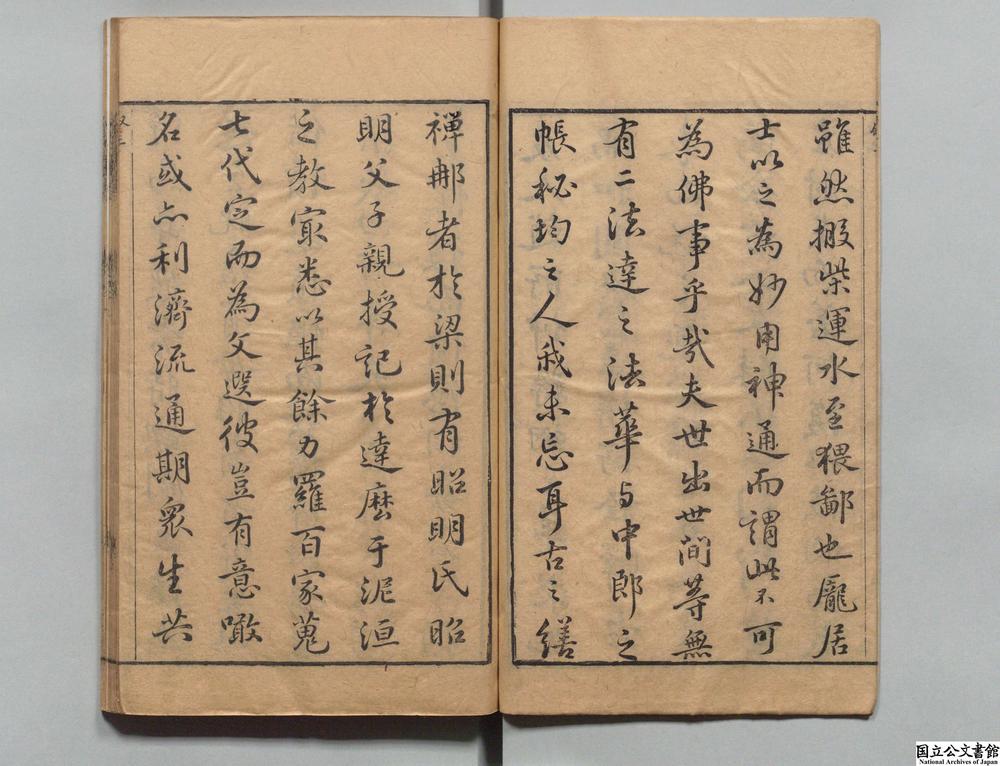 雖然搬柴運水至猥鄙也龐居
士以之為妙用神通而謂此不可
為佛事乎哉夫世出世間等無
有二法達之法華与中郎之
帳秘均之人我未忘耳古之繕
禅那者於梁則有昭明氏昭
明父子親授記於達麼于泥洹
之教寂悉以其餘力羅百家蒐
七代定而為文選彼豈有意噉
名或亦利濟流通期衆生共
国立公文書館
National Archives of Japan